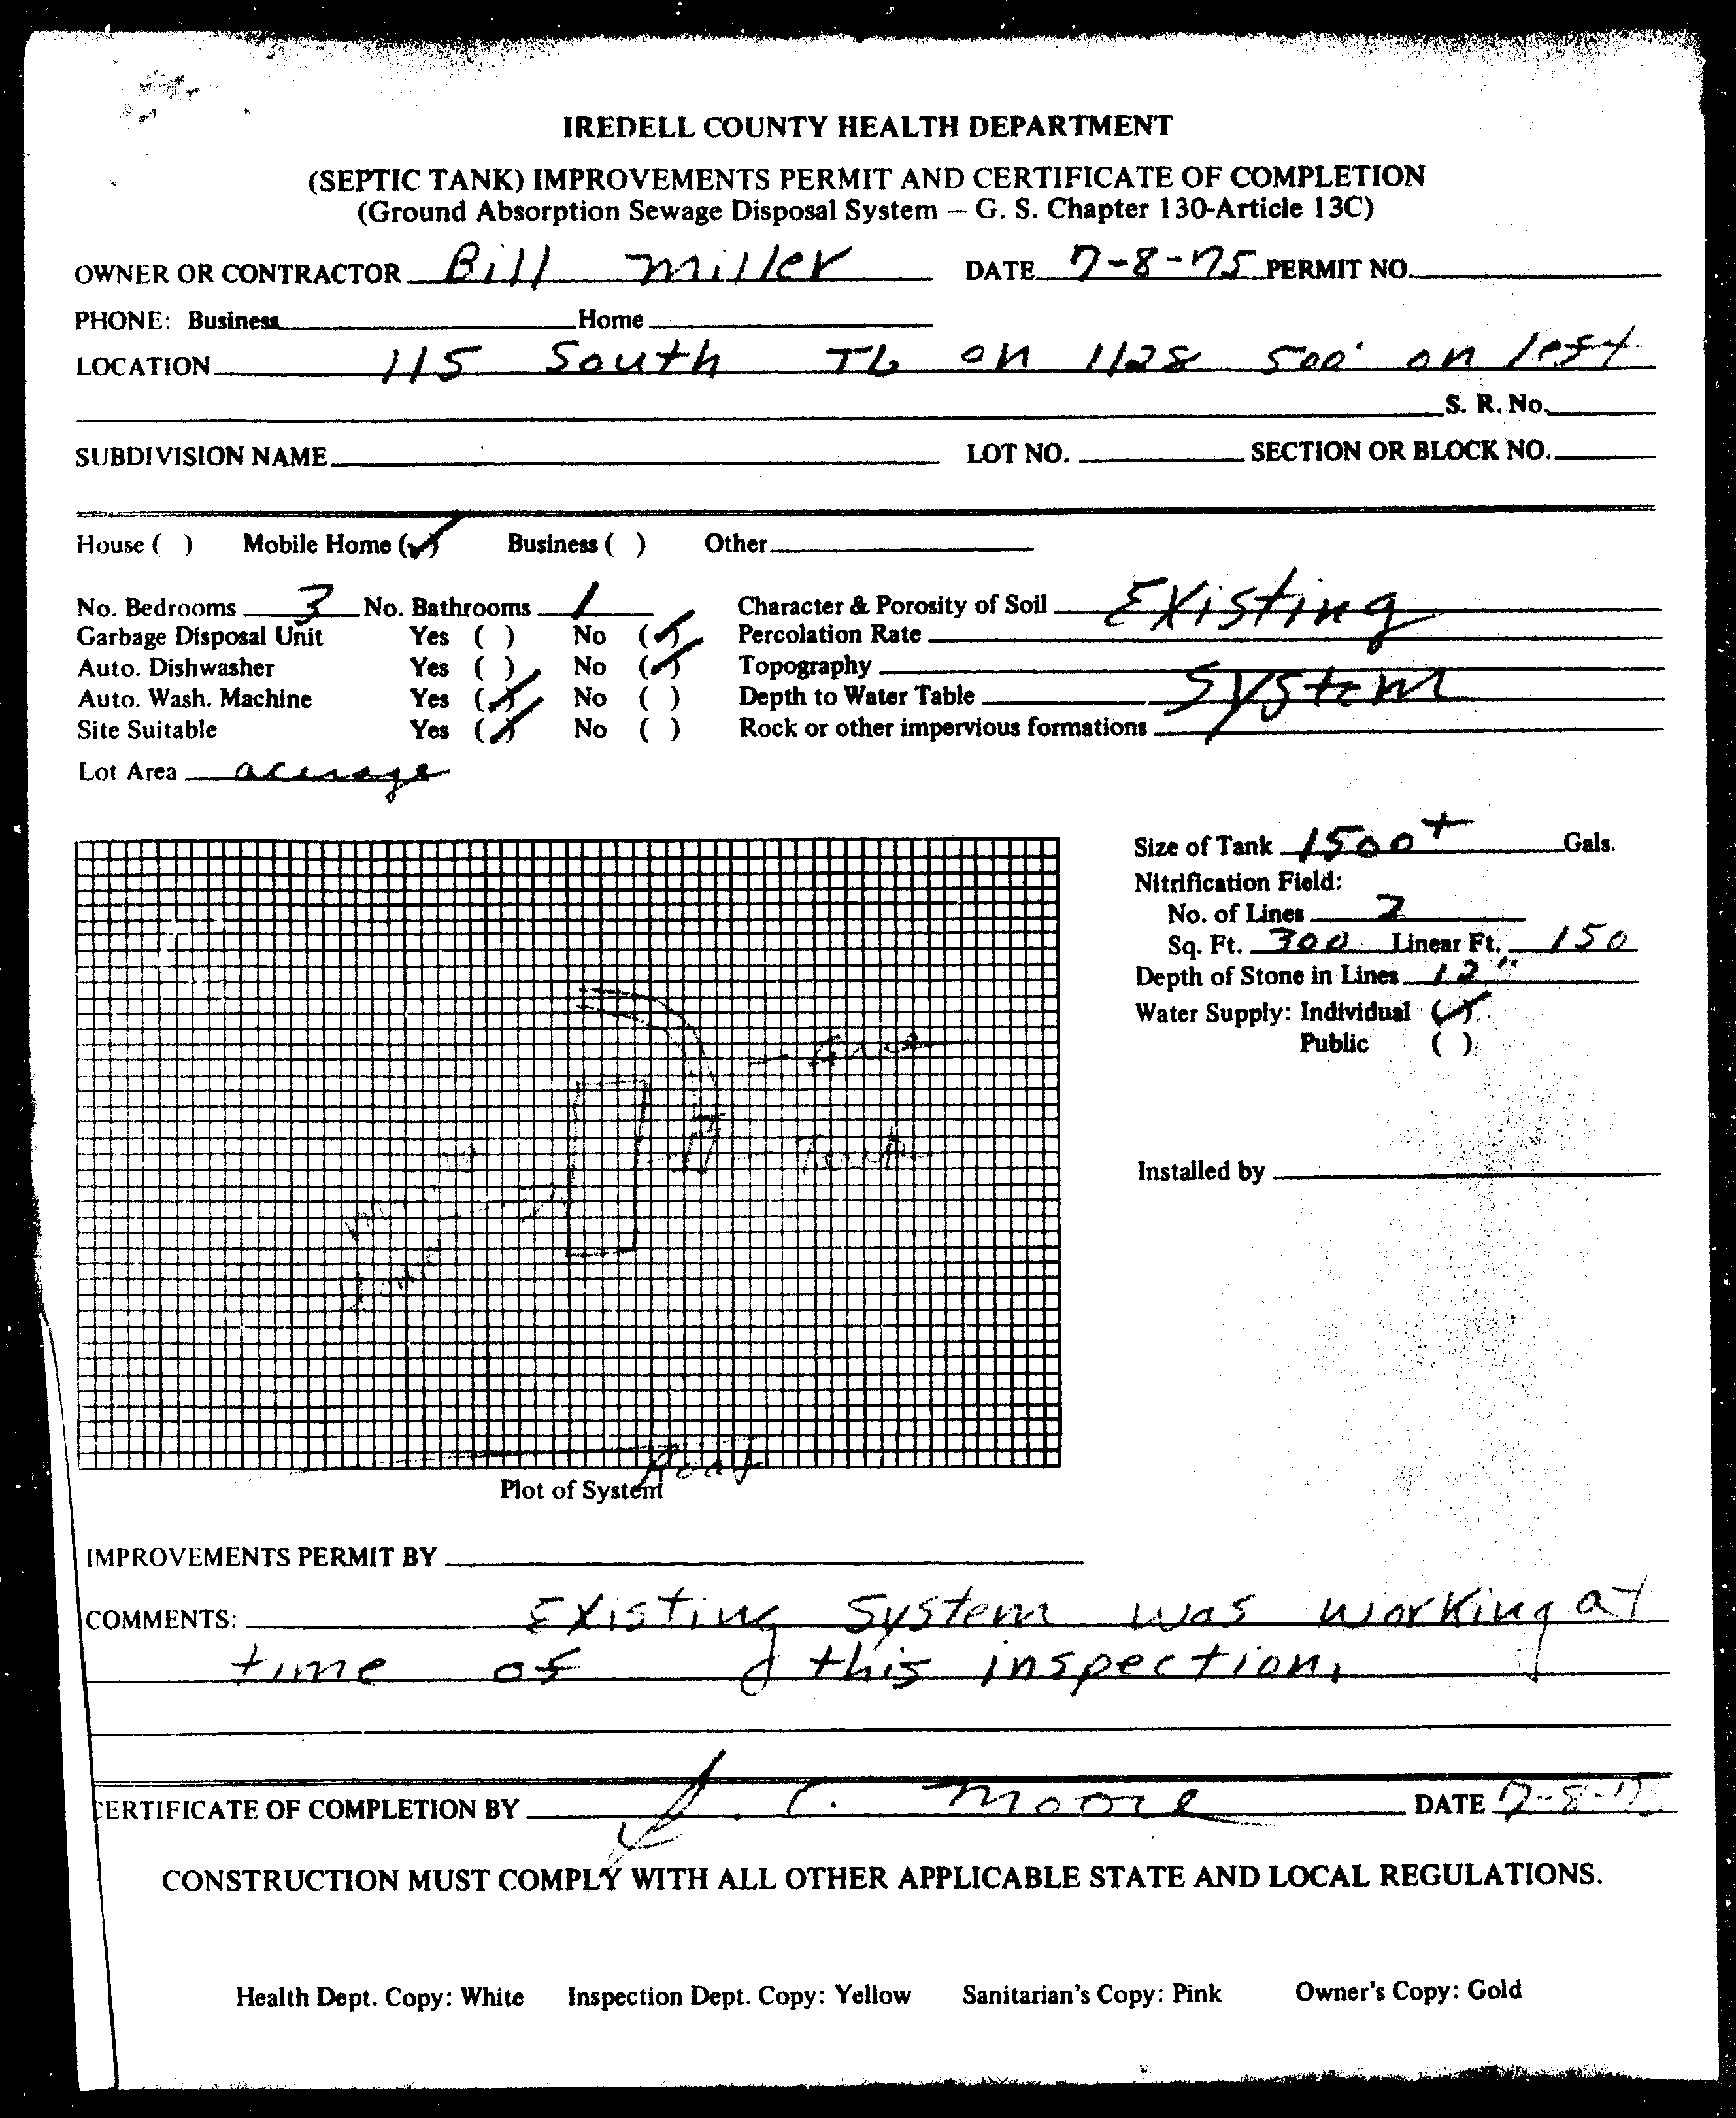 IREDELL COUNTY HEALTH DEPARTMENT
(SEPTIC TANK) IMPROVEMENTS PERMIT AND CERTIFICATE OF COMPLETION
(Ground Absorption Sewage Disposal System – G. S. Chapter 130-Article 13C)
OWNER OR CONTRACTOR Bill Miller DATE 7-8-75 PERMIT NO.
PHONE: Business Home
LOCATION 115 South TL on 1128 500' on left
S. R. No.
SUBDIVISION NAME LOT NO. SECTION OR BLOCK NO.
House ( ) Mobile Home (✓) Business ( ) Other
No. Bedrooms 3 No. Bathrooms 1 Character & Porosity of Soil Existing
Garbage Disposal Unit Yes ( ) No (✓) Percolation Rate
Auto. Dishwasher Yes ( ) No (✓) Topography System
Auto. Wash. Machine Yes (✓) No ( ) Depth to Water Table
Site Suitable Yes (✓) No ( ) Rock or other impervious formations
Lot Area acerage
Size of Tank 1500+ Gals.
Nitrification Field:
No. of Lines 2
Sq. Ft. 300 Linear Ft. 150
Depth of Stone in Lines 12"
Water Supply: Individual (✓)
Public ( )
Tank
Installed by
Road
Plot of System
IMPROVEMENTS PERMIT BY
COMMENTS: Existing System was working at
time of this inspection.
CERTIFICATE OF COMPLETION BY C. Moore DATE 7-8-75
CONSTRUCTION MUST COMPLY WITH ALL OTHER APPLICABLE STATE AND LOCAL REGULATIONS.
Health Dept. Copy: White Inspection Dept. Copy: Yellow Sanitarian's Copy: Pink Owner's Copy: Gold